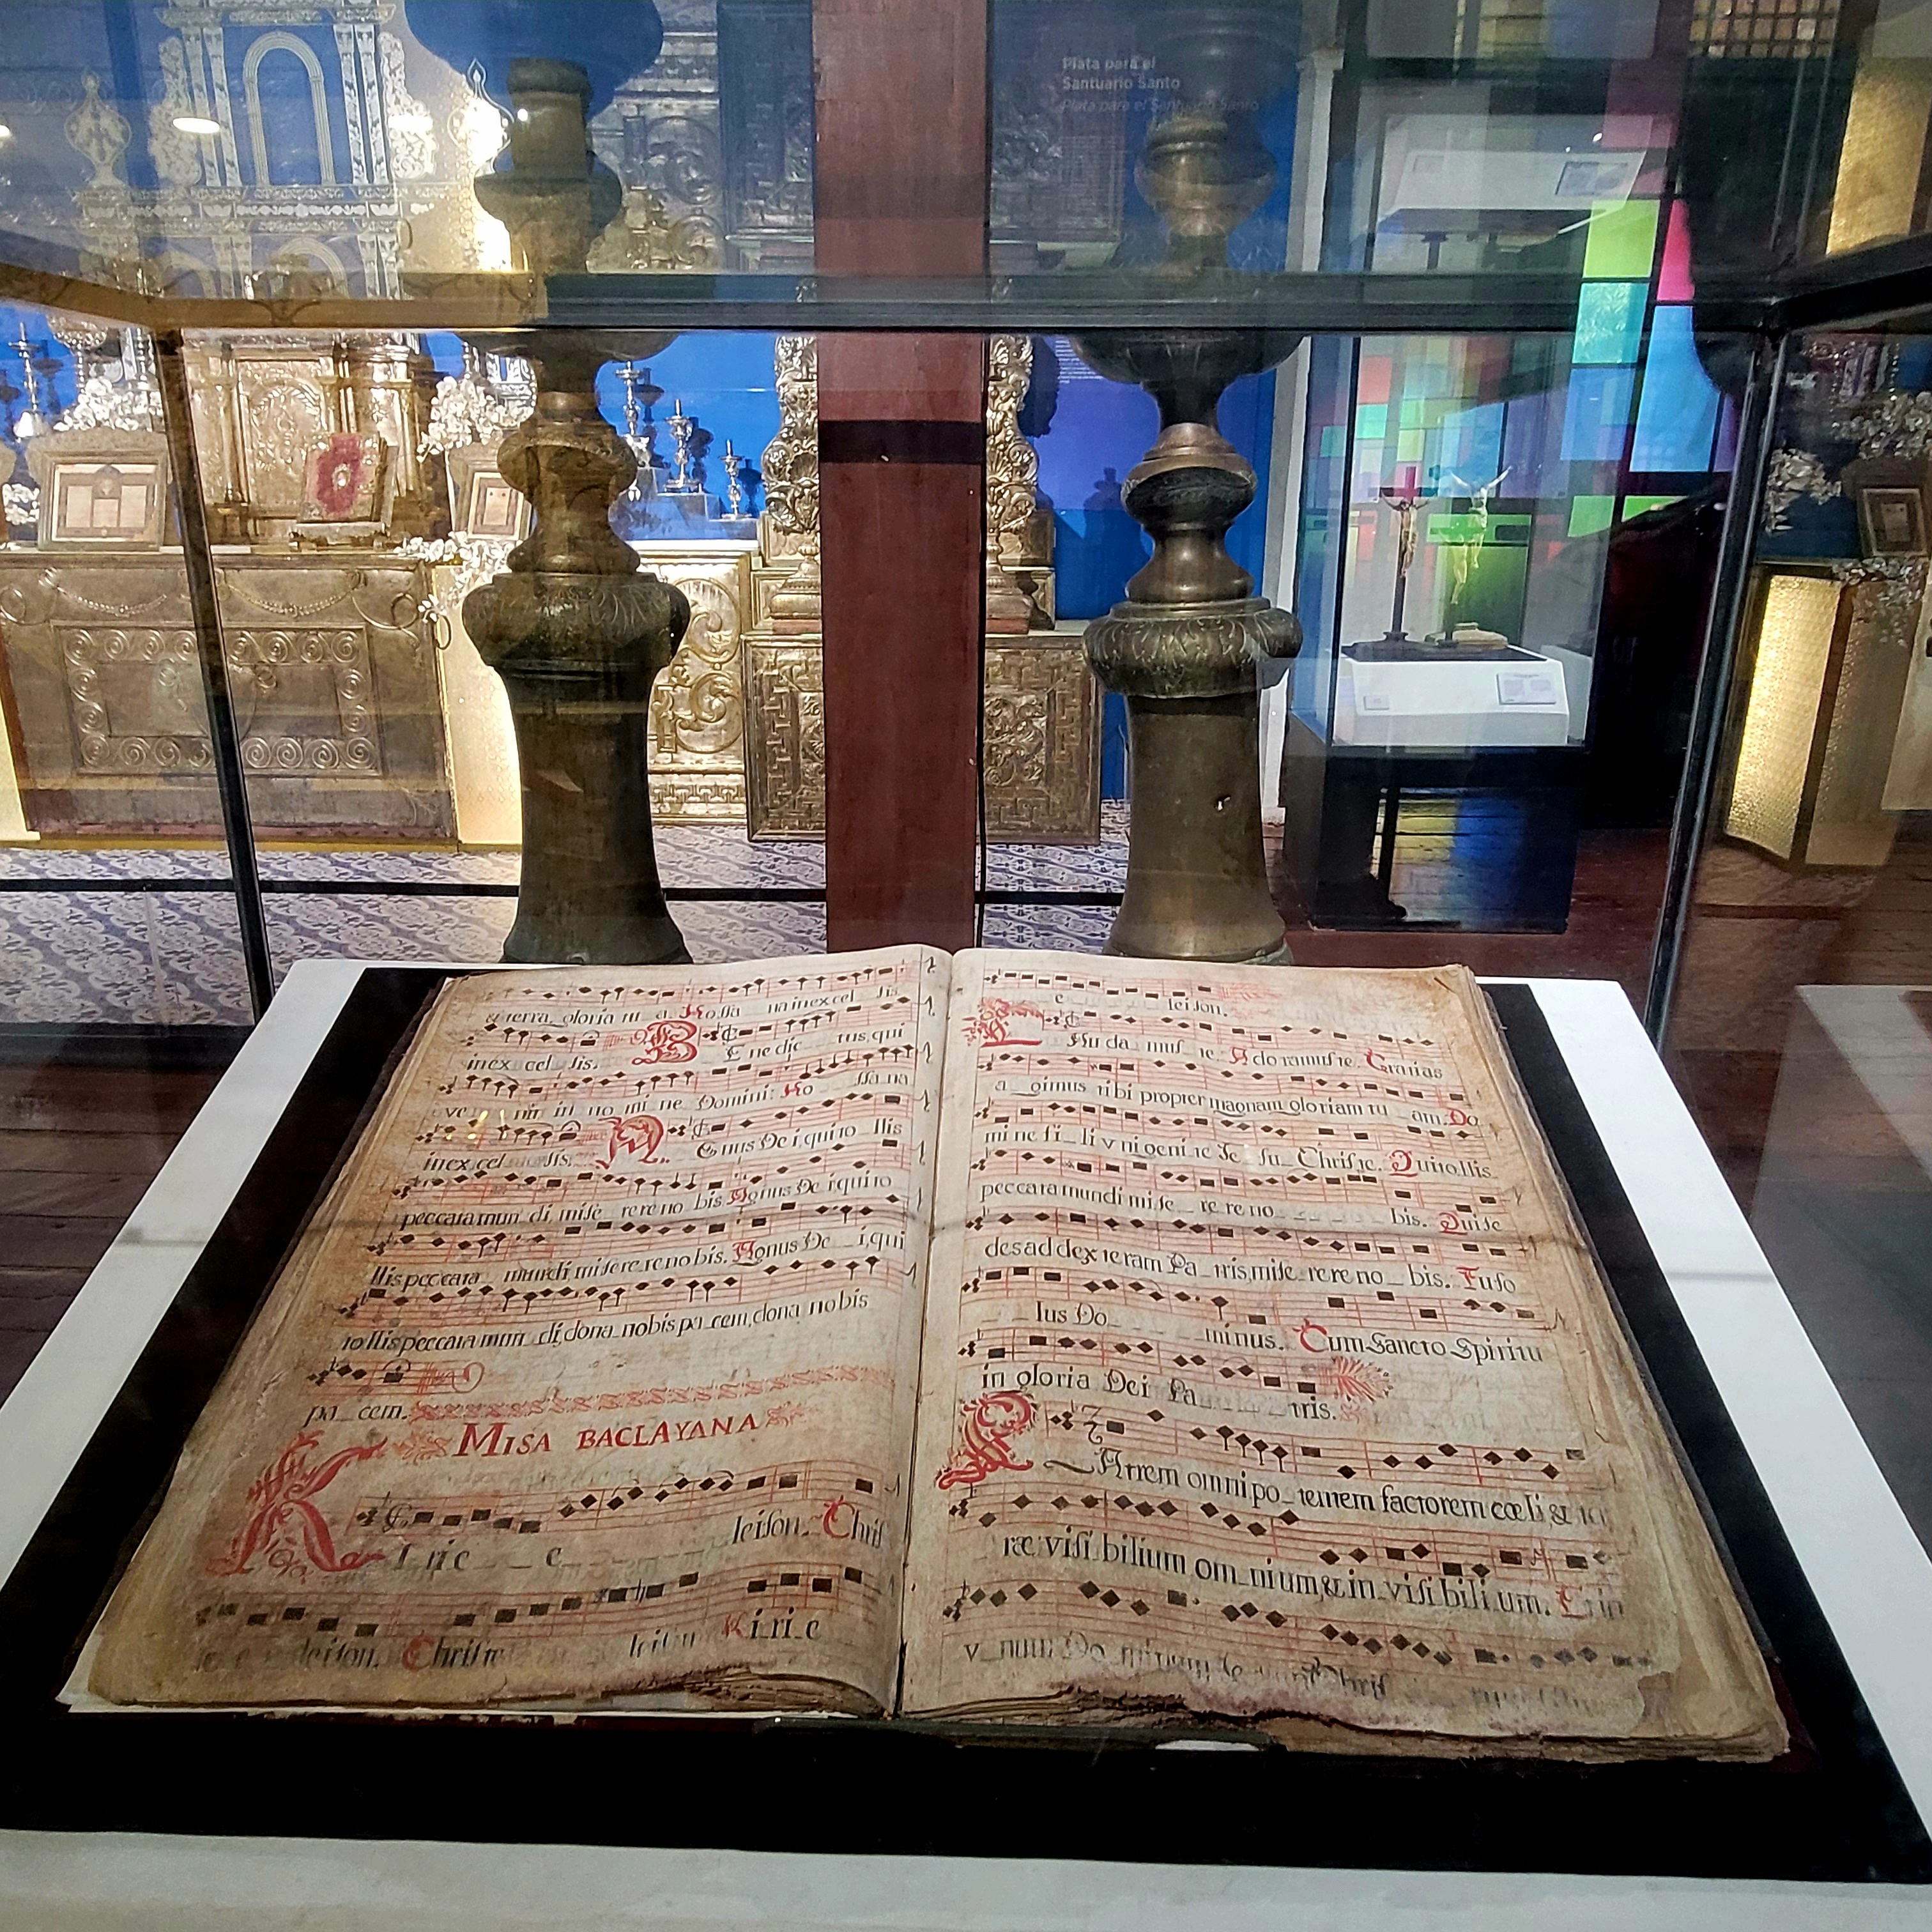 Plata para el
Santuario Santo
Plata para el Santuario Santo
& terra, gloria tu a. Hossa na in excel sis
in ex cel sis. B E ne dic tus, qui
ve nit in no mi ne Domini: Ho ssa na
in ex cel sis. A Gnus De i, qui to llis
peccata mun di, mise re re no bis. Agnus De i qui to
llis pec cata mundi, mise re re no bis. Agnus De i, qui
to llis peccata mun di, dona nobis pa cem, dona nobis
pa cem.
MISA BACLAYANA
K I ri e e leison. Chris
leison. Christe leison Ki ri e
e leison.
L Au da mus te. A do ramus te. Gratias
a gimus tibi propter magnam gloriam tu am. Do
mi ne fi li v ni geni te Je su Chris te. Qui to llis
peccata mundi mi se re re no bis. Qui se
des ad dex teram Pa tris, mise re re no bis. Tu so
lus Do minus. Cum Sancto Spiritu
in gloria Dei Pa tris.
P Atrem omni po tentem factorem cœli, & te
ræ visi bilium om nium, & in visi bili um. Et in
v num Do minum Je Chris